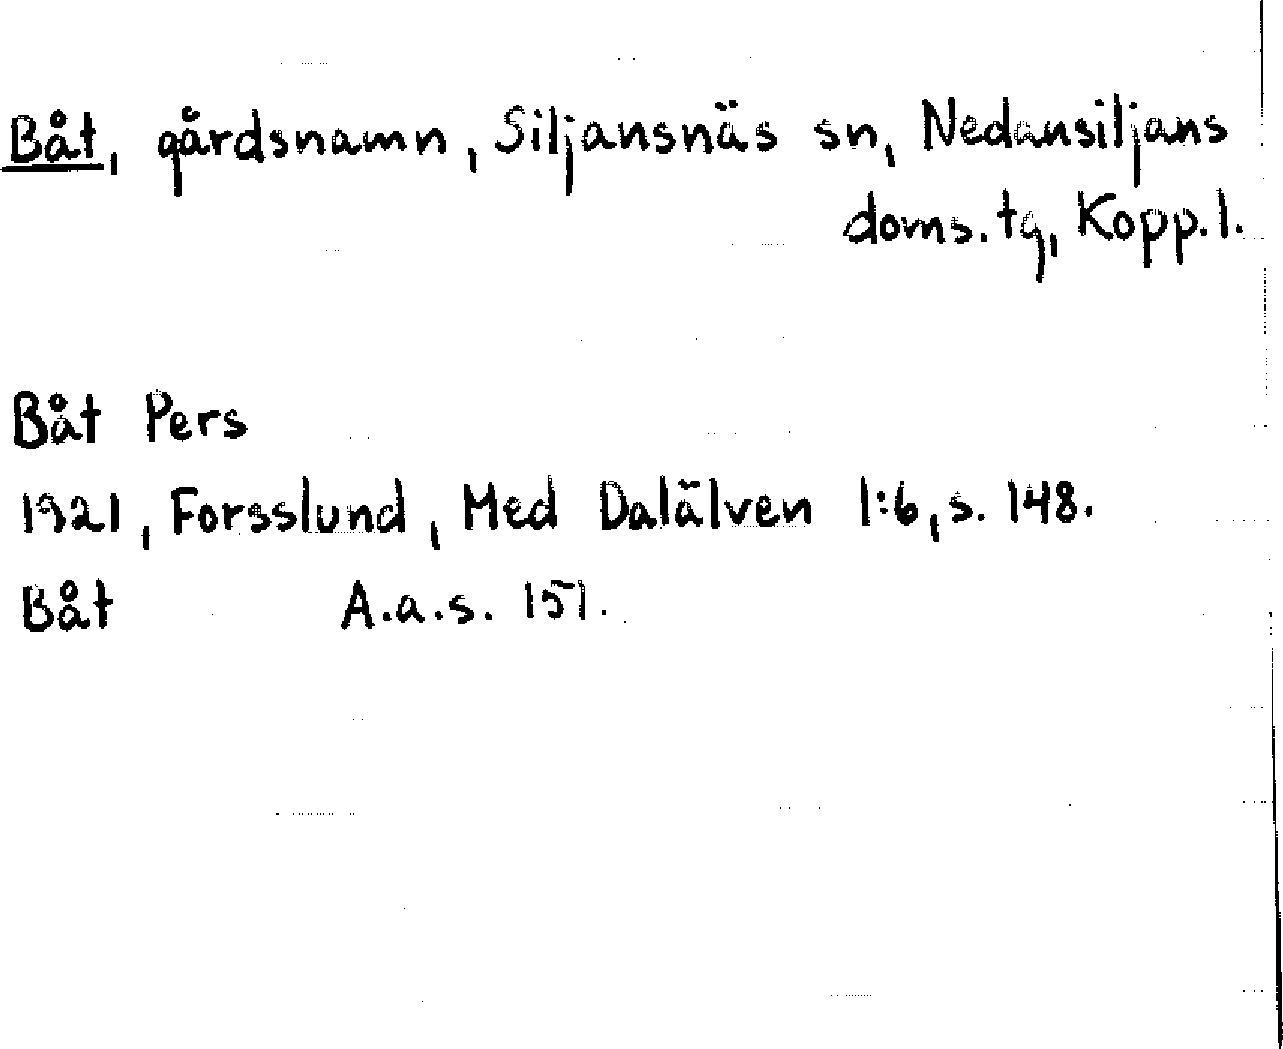 Båt, gårdsnamn, Siljansnäs sn, Nedansiljans
doms. tg, Kopp. l.
Båt Pers
1921, Forsslund, Med Dalälven 1:6, s. 148.
Båt A.a.s. 151.